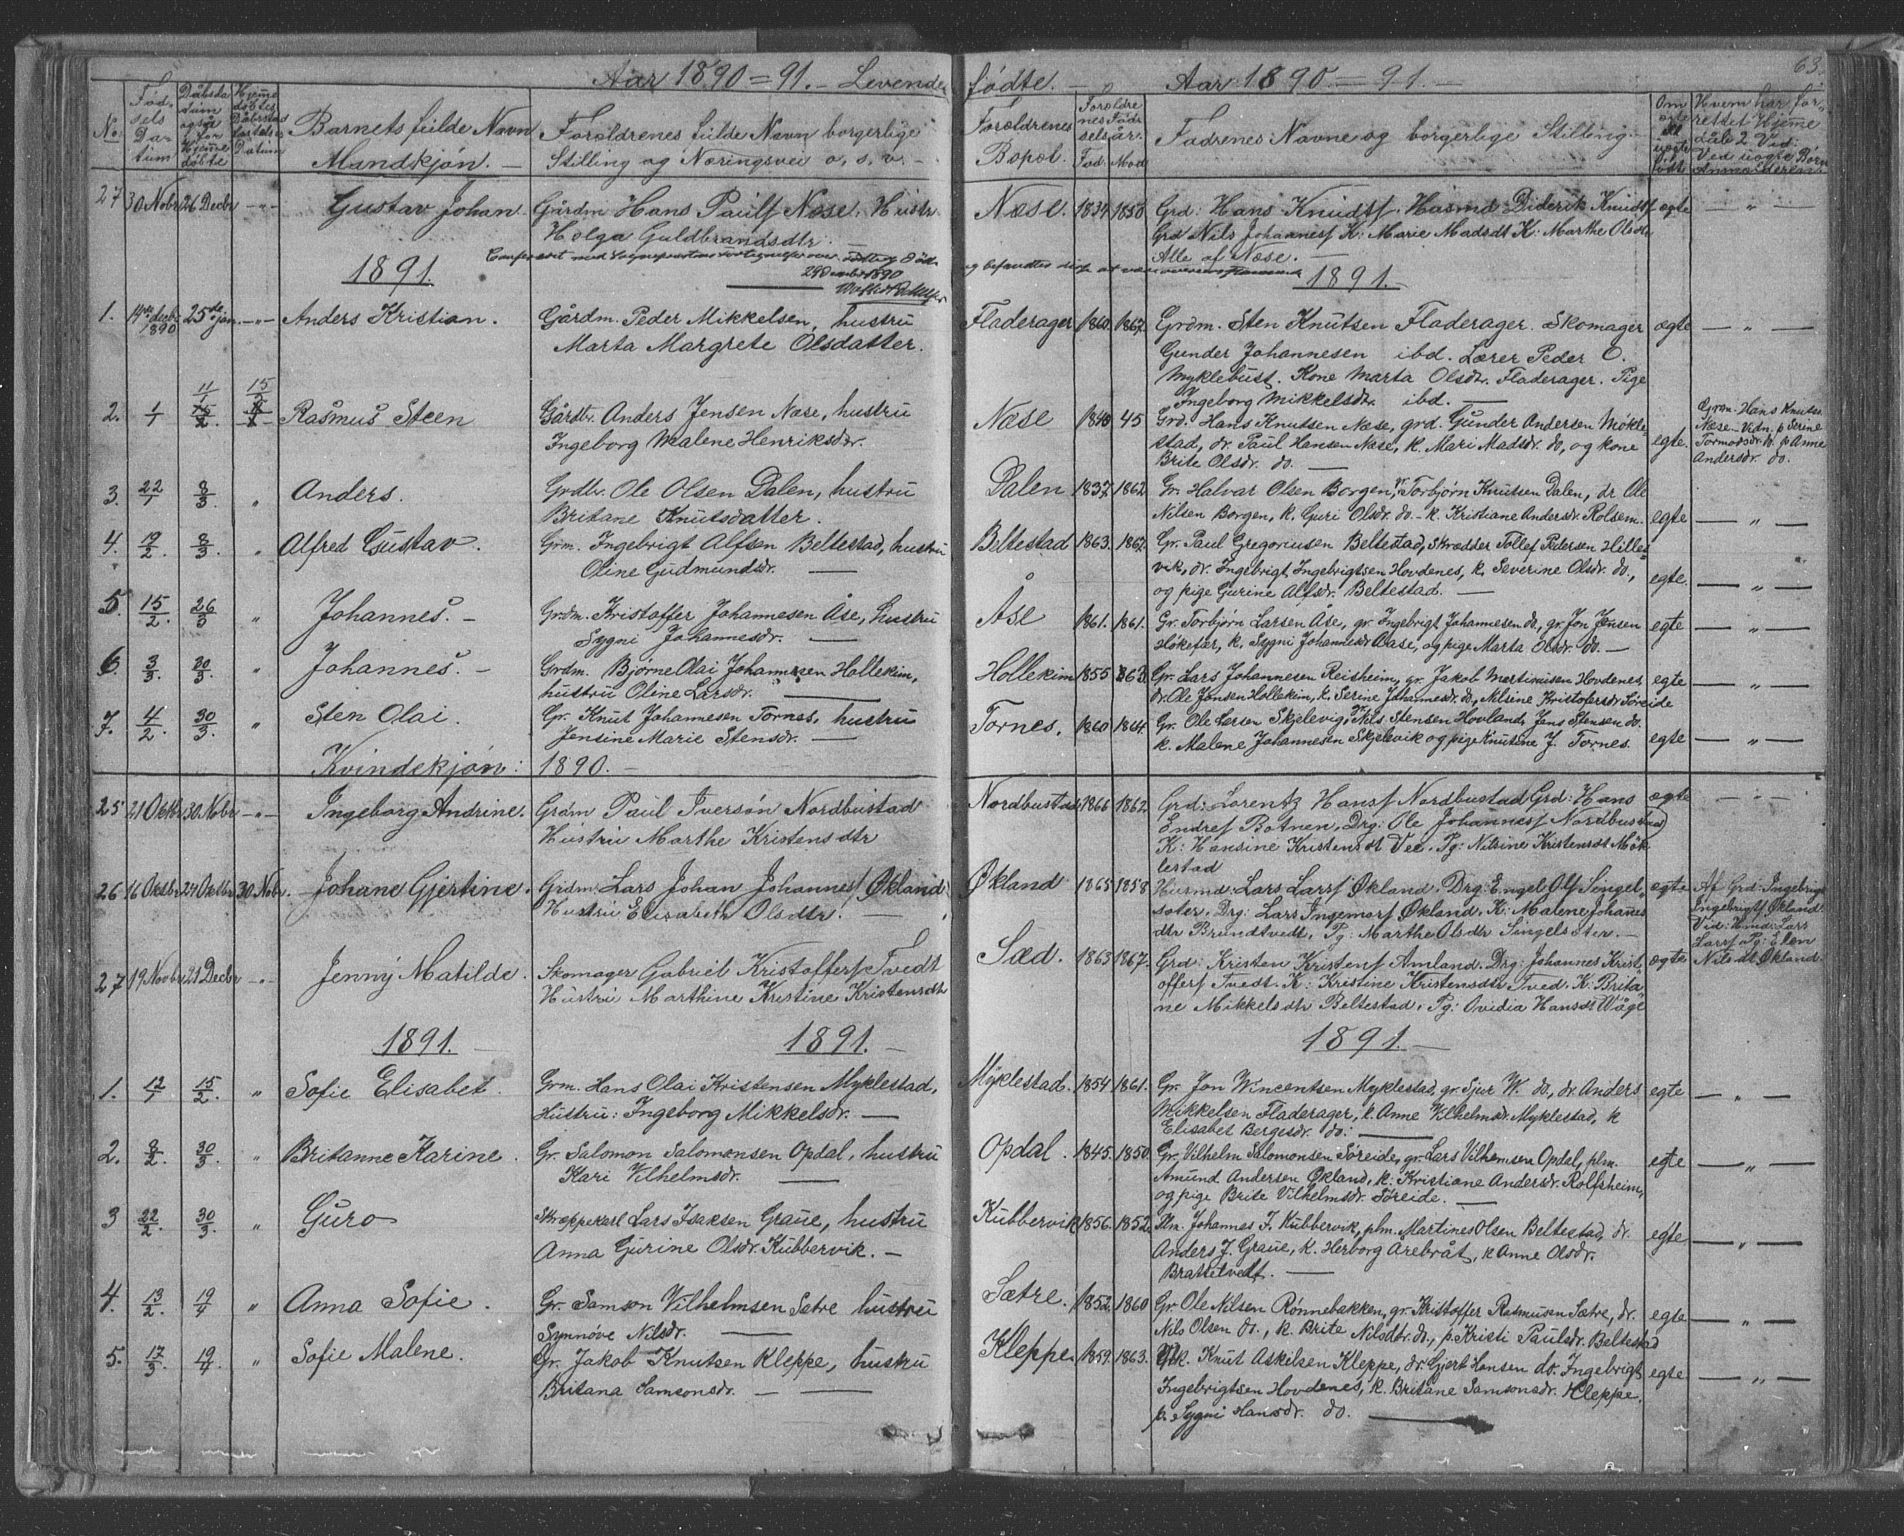 Aar 1890=91. – Levende
No.
Fød-
sels
Da-
tum
Dåbsda
tum
også
for
Hjeme
døbte
Hjeme
døbtes
Datum
Barnets fulde Navn
Mandkjøn. –
Forældrenes fulde Navn borgerlige
Stilling og Næringsvei o. s. v. –
27 30 Nobr 26 Decbr –"– Gustav Johan. Gårdm Hans Paulf Næse. Hustr.
Helga Guldbrandsdtr. –
1891.
29 Decmber 1890
1. 14de decbr 1890 25de jan. –"– Anders Kristian. Gårdm. Peder Mikkelsen, hustru
Marta Margrete Olsdatter.
2. 1/1 11/1 15/2 Rasmus Steen Gårdbr. Anders Jensen Næse, hustru
Ingeborg Malene Henriksdr.
3. 22/1 8/3 " Anders. Grdbr. Ole Olsen Dalen, hustru
Britane Knutsdatter.
4. 19/2 8/3 " Alfred Gustav. Grm. Ingebrigt Alfsen Beltestad, hustru
Oline Gudmundsdr. –
5. 15/2. 26/3 " Johannes. – Grdm. Kristoffer Johannesen Åse, hustru
Sygni Johannesdr. –
6. 3/3 30/3 " Johannes. – Grdm. Bjørne Olai Johannesen Hollekim,
hustru Oline Larsdr. –
7. 4/2 30/3. " Sten Olai. Gr. Knut Johannesen Tornes, hustru
Jensine Marie Stensdr. –
Kvindekjøn: 1890. –
25 21 Oktbr 30 Nobr –"– Ingeborg Andrine. Grdm Paul Iversøn Nordbustad
Hustru Marthe Kristensdtr
26 16 Oktbr 24 Oktbr 30 Nobr. Johane Gjertine. Grdm: Lars Johan Johannesf Økland
Hustru Elisabeth Olsdtr. –
27 19 Novbr 21 Decbr –"– Jenny Matilde. Skomager Gabriel Kristofferf Tvedt
Hustru Marthine Kristine Kristensdtr
1891. – 1891. –
1. 12/1 15/2 " Sofie Elisabet. Grm. Hans Olai Kristensen Myklestad,
Hustru: Ingeborg Mikkelsdr. –
2. 8/2. 30/3 " Britanne Karine. Gr. Salomon Salomonsen Opdal, hustru
Kari Vilhelmsdr. –
3 22/2. 30/3. " Guro Skræppekarl Lars Isaksen Graue, hustru
Anna Gurine Olsdr. Kubbervik. –
4. 13/2. 19/4 " Anna Sofie. Gr. Samson Vilhelmsen Sætre hustru
Synnøve Nilsdr. –
5. 17/3 19/4 " Sofie Malene. Gr. Jakob Knutsen Kleppe, hustru
Britana Samsonsdr. –
63.
fødte. – Aar 1890=91. –
Forældrenes
Bopæl.
Forældre
nes Fød-
selsår.
Fad. Mod.
Fadrenes Navne og borgerlige Stilling. –
Om
ægte
el
uægte
født
Hvem har for-
rettet Hjeme
dåb? Vid:
Ved uægte Børn
Anmelderen.
Næse. 1834. 1858 Grd: Hans Knudtf. Husmd Diderik Knudtf ægte – " –
Grd Nils Johannesf K: Marie Madsdt K: Marthe Olsdtr
Alle af Næse. –
1891. –
Fladerager 1860 1867. Grdm. Sten Knutsen Fladerager. Skomager ægte – " –
Gunder Johannesen ibd. Lærer Peder O.
Myklebust. Kone Marta Olsdr. Fladerager. Pige
Ingeborg Mikkelsdr. ibd. –
Næse 1840 45 Grd. Hans Knutsen Næse, grd. Gunder Andersen Møkle-
stad, dr. Paul Hansen Næse, k. Mari Madsdr. do, og kone
Brite Olsdr. do. –
egte.
Grdm. Hans Knutsn
Næse – Vidn. p Serine
Tormodsdr. N. p Anne
Andersdr. do.
Dalen 1837. 1862 Gr. Halvar Olsen Borgen, gr. Torbjørn Knutsen Dalen, dr Ole
Nilsen Borgen, k. Guri Olsdr. do – k. Kristiane Andersdr. Rolsem. egte – " –
Beltestad 1863. 1867. Gr. Paul Gregoriusen Beltestad, skrædder Tollef Pedersen Hille-
vik, dr. Ingebrigt Ingebrigtsen Hovdenes, k. Severine Olsdr. do.,
og pige Gurine Alfsdr. Beltestad. – egte. – " –
Åse 1861. 1861. Gr. Torbjørn Larsen Åse, gr. Ingebrigt Johannesen do, gr. Jon Jensen egte – " –
Høkefær, k. Sygni Johannesdr Aase, og pige Marta Olsdr. do. –
Hollekim 1855 1863. Gr. Lars Johannesen Reisheim, gr. Jakob Martinusen Hovdenes, egte – " –
dr. Ole Jonsen Hollekim, k. Serine Johannesdr. do, Nilsine Kristofersdr Søreide
Tornes. 1860 1864. Gr. Ole Larsen Skjelevig, gr. Nils Stensen Hovland, Jens Stensen do.
k. Malene Johannesen Skjelevik og pige Knutine J. Tornes. egte – " –
Nordbustad 1866 1862. Grd: Lorentz Hansf Nordbustad Grd: Hans ægte – " –
Endref Botnen. Drg: Ole Johannesf Nordbustad
K: Hansine Kristensdt Vee. Pg: Nilsine Kristensdt Møk
lestad
Økland 1865 1858 Husmd: Lars Larsf Økland. Drg: Engel Olf Singel- ægte
søter. Drg: Lars Ingemarf Økland. K: Malene Johannes
dtr Brundtvedt. Pg: Marthe Olsdtr Singelsøter. –
Af Grd: Ingebrigt
Ingebrigtf Økland
Vid: Hmd: Lars
Larsf Pg: Elen
Nilsdt Økland.
Sæd. 1863 1867. Grd: Kristen Kristenf Amland. Drg: Johannes Krist- ægte
offerf Tvedt. K: Kristine Kristensdtr Tved. K: Brita
ne Mikkelsdtr Beltestad. Pg: Ovidia Hansdt Våge
1891. –
Myklestad. 1854 1861. Gr. Jon Vincentsen Myklestad, gr. Sjur W. do, dr. Anders egte – " –
Mikkelsen Fladerager, k. Anne Vilhelmsdr. Myklestad, k
Elisabet Bergesdr. do. –
Opdal. 1845. 1850. Gr. Vilhelm Salomonsen Søreide, gr. Lars Vilhemsen Opdal, plm. egte – " –
Amund Andersen Økland, k: Kristiane Andersdr. Rolfsheim,
og pige Brite Vilhelmsdr. Søreide. –
Kubbervik 1856. 1852. Plm. Johannes J. Kubbervik, plm. Martines Olsen Beltestad, dr. egte – " –
Anders J. Graue, k. Herborg Arebråt, k Anne Olsdr.
Brattetvedt. –
Sætre. 1852. 1860 Gr. Ole Nilsen Rønnebakken, gr. Kristoffer Rasmusen Sætre, dr. egte – " –
Nils Olsen do., k. Brite Nilsdtr. do., p. Kristi Paulsdr. Beltestad
Kleppe. 1859. 1863. Knut Askelsen Kleppe, dr. Gjert Hansen do. Ingebrigt egte – " –
Ingebrigtsen Hovdenes, k. Britane Samsonsdr. Kleppe.
p. Sygni Hansdr. do. –